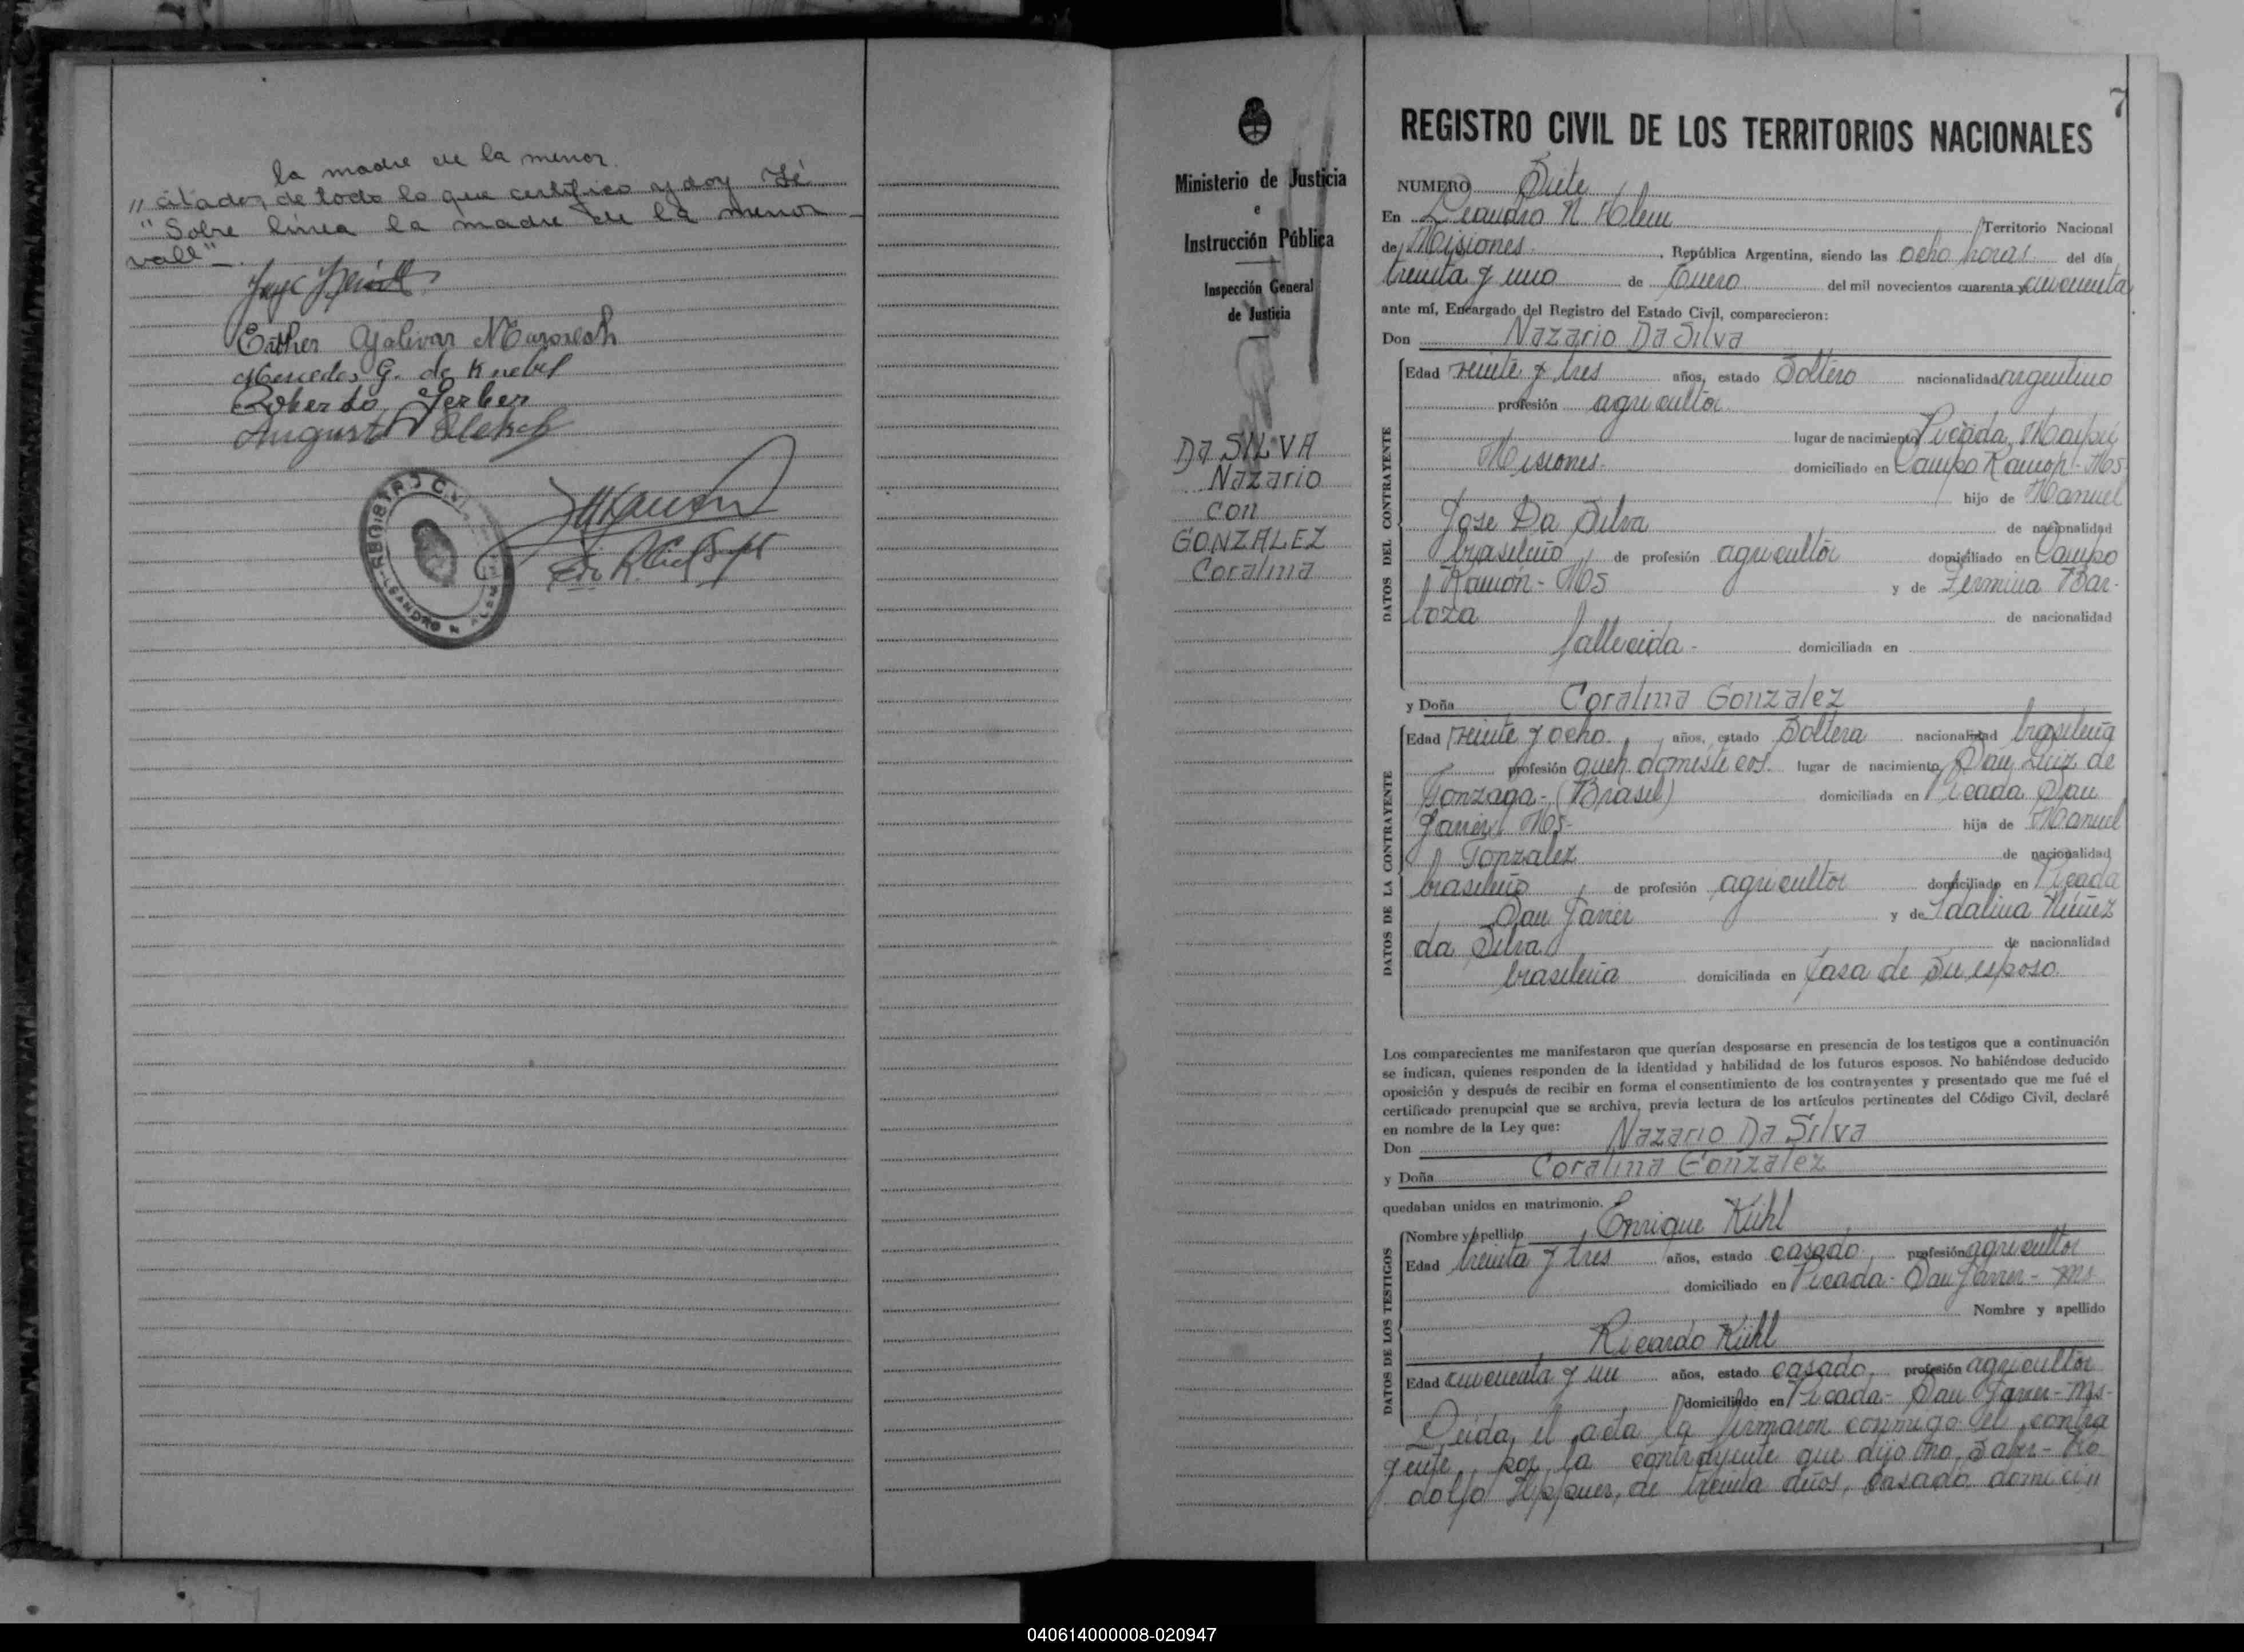 la madre de la menor.
" citados, de todo lo que certifico y doy fé
" Sobre línea la madre de la menor -
vale" -.
Esther Galivar
Mercedes G. de Knebel
Roberto Gerber
August
REGISTRO CIVIL
LEANDRO N. ALEM
Ministerio de Justicia
e
Instrucción Pública
Inspección General
de Justicia
DA SILVA
Nazario
con
GONZALEZ
Coralina
7
REGISTRO CIVIL DE LOS TERRITORIOS NACIONALES
NUMERO Siete
En Leandro N. Alem Territorio Nacional
de Misiones, República Argentina, siendo las ocho horas del día
treinta y uno de Enero del mil novecientos cuarenta y cincuenta
ante mí, Encargado del Registro del Estado Civil, comparecieron:
Don Nazario Da Silva
DATOS DEL CONTRAYENTE
Edad veinte y tres años, estado Soltero nacionalidad argentino
profesión agricultor
lugar de nacimiento Picada Maipú
Misiones. domiciliado en Campo Ramón - Mos
hijo de Manuel
Jose Da Silva de nacionalidad
brasileño de profesión agricultor domiciliado en Campo
Ramón - Mos y de Fermina Bar-
boza de nacionalidad
fallecida - domiciliada en
y Doña Coralina Gonzalez
DATOS DE LA CONTRAYENTE
Edad veinte y ocho años, estado Soltera nacionalidad brasileña
profesión queh. domésticos. lugar de nacimiento San Luiz de
Gonzaga - (Brasil) domiciliada en Picada San
Javier Mos - hija de Manuel
Gonzalez de nacionalidad
brasileño de profesión agricultor domiciliado en Picada
San Javier y de Idalina Núñez
da Silva de nacionalidad
brasileña domiciliada en casa de su esposo.
Los comparecientes me manifestaron que querían desposarse en presencia de los testigos que a continuación
se indican, quienes responden de la identidad y habilidad de los futuros esposos. No habiéndose deducido
oposición y después de recibir en forma el consentimiento de los contrayentes y presentado que me fué el
certificado prenupcial que se archiva, previa lectura de los artículos pertinentes del Código Civil, declaré
en nombre de la Ley que:
Don Nazario Da Silva
y Doña Coralina Gonzalez
quedaban unidos en matrimonio.
DATOS DE LOS TESTIGOS
Nombre y apellido Enrique Kühl
Edad treinta y tres años, estado casado profesión agricultor
domiciliado en Picada - San Javier - Ms
Nombre y apellido
Ricardo Kühl
Edad cincuenta y un años, estado casado profesión agricultor
domiciliado en Picada - San Javier - Ms -
Leida el acta la firmaron conmigo el contra
yente, por la contrayente que dijo no saber - Ro
dolfo de treinta años, casado, domicili
040614000008-020947